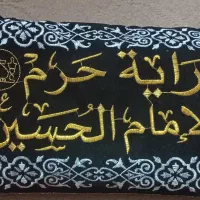 راية حرم
الإمام الحسين